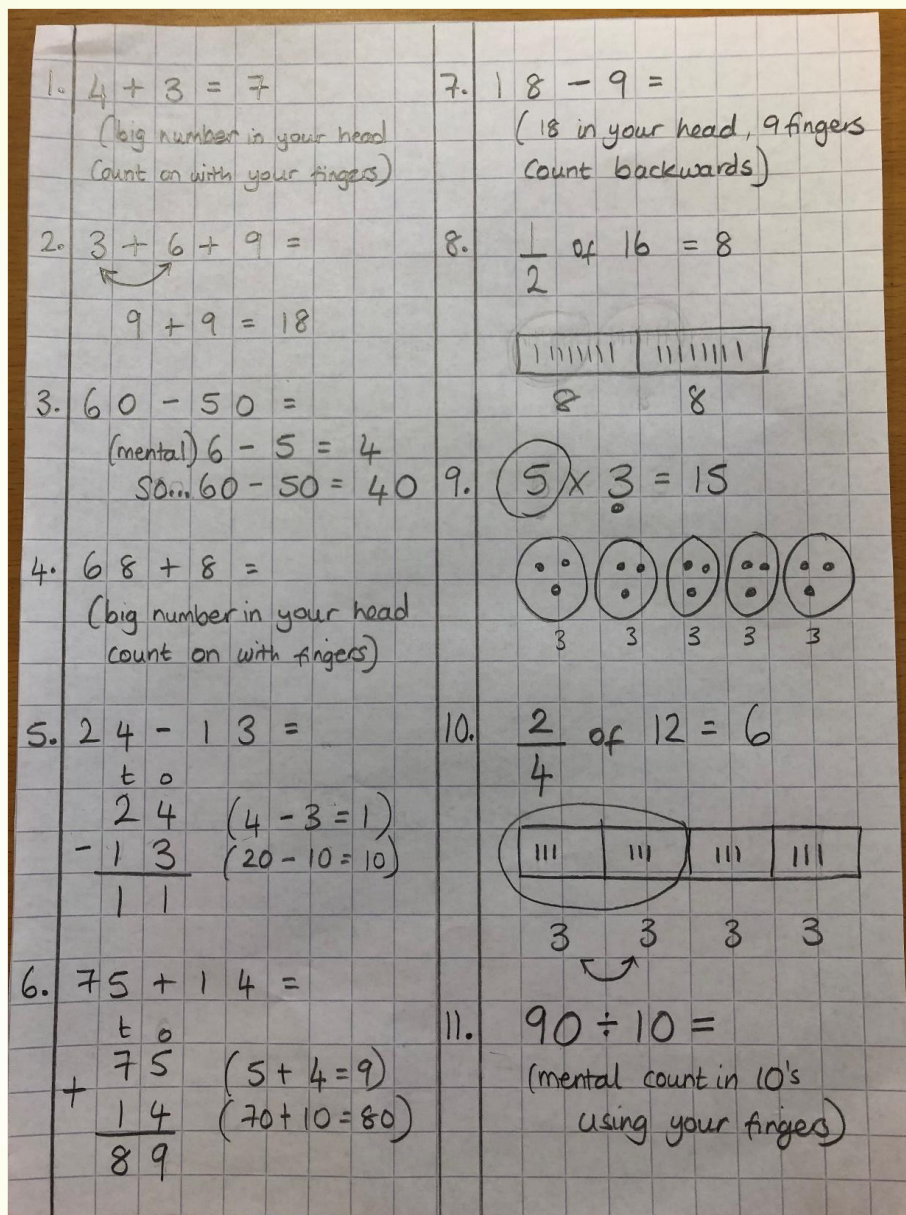 1. 4 + 3 = 7
(big number in your head
Count on with your fingers)
2. 3 + 6 + 9 =
9 + 9 = 18
3. 60 - 50 =
(mental) 6 - 5 = 4
so... 60 - 50 = 40
4. 68 + 8 =
(big number in your head
count on with fingers)
5. 24 - 13 =
t o
24 (4 - 3 = 1)
- 13 (20 - 10 = 10)
11
6. 75 + 14 =
t o
75 (5 + 4 = 9)
+ 14 (70 + 10 = 80)
89
7. 18 - 9 =
(18 in your head, 9 fingers
count backwards)
8. 1/2 of 16 = 8
8 8
9. 5 x 3 = 15
3 3 3 3 3
10. 2/4 of 12 = 6
3 3 3 3
11. 90 ÷ 10 =
(mental count in 10's
using your fingers)